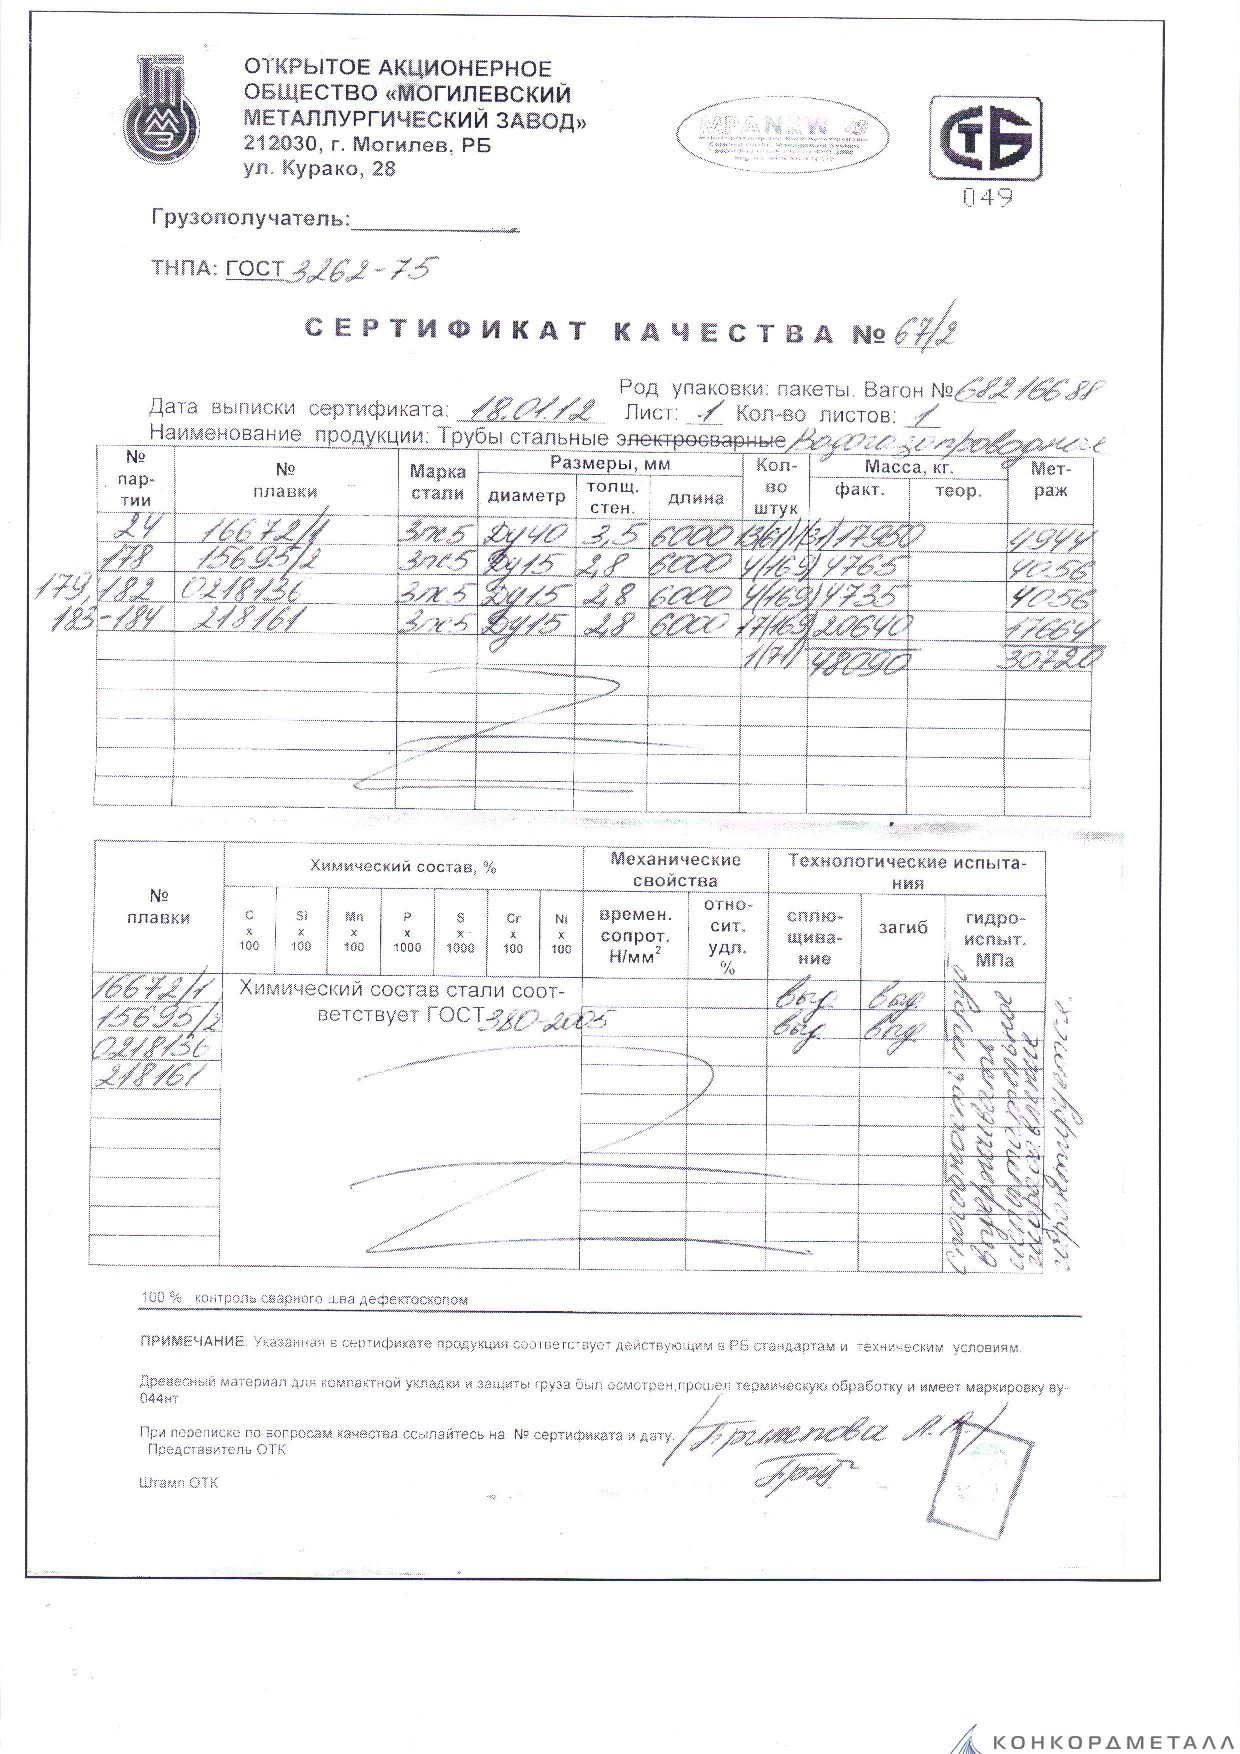 ОТКРЫТОЕ АКЦИОНЕРНОЕ
ОБЩЕСТВО «МОГИЛЕВСКИЙ
МЕТАЛЛУРГИЧЕСКИЙ ЗАВОД»
212030, г. Могилев, РБ
ул. Курако, 28
СТБ
049
Грузополучатель:
ТНПА: ГОСТ 3262-75
СЕРТИФИКАТ КАЧЕСТВА № 67/2
Род упаковки: пакеты. Вагон № 68216688
Дата выписки сертификата: 18.01.12 Лист: 1 Кол-во листов: 1
Наименование продукции: Трубы стальные электросварные Водогазопроводные
№ партии № плавки Марка стали Размеры, мм диаметр толщ. стен. длина Кол-во штук Масса, кг. факт. теор. Метраж
24 16672/1 3пс5 Ду40 3,5 6000 13(61) 1(31) 17950 4944
178 15695/2 3пс5 Ду15 2,8 6000 4(169) 4765 4056
179, 182 0218136 3пс5 Ду15 2,8 6000 4(169) 4735 4056
183-184 218161 3пс5 Ду15 2,8 6000 17(169) 20640 17664
1(71) 48090 30720
№ плавки Химический состав, % Механические свойства Технологические испытания
C x 100 Si x 100 Mn x 100 P x 1000 S x 1000 Cr x 100 Ni x 100 времен. сопрот. Н/мм² относит. удл. % сплющивание загиб гидроиспыт. МПа
16672/1 Химический состав стали соот- выд. выд.
15695/2 ветствует ГОСТ 380-2005 выд. выд.
0218136
218161
Способность труб
выдерживать
испытательное
гидродавление
гарантируется.
100 % контроль сварного шва дефектоскопом
ПРИМЕЧАНИЕ. Указанная в сертификате продукция соответствует действующим в РБ стандартам и техническим условиям.
Древесный материал для компактной укладки и защиты груза был осмотрен,прошел термическую обработку и имеет маркировку ву-
044нт
При переписке по вопросам качества ссылайтесь на № сертификата и дату.
Представитель ОТК
Штамп ОТК
КОНКОРДМЕТАЛЛ